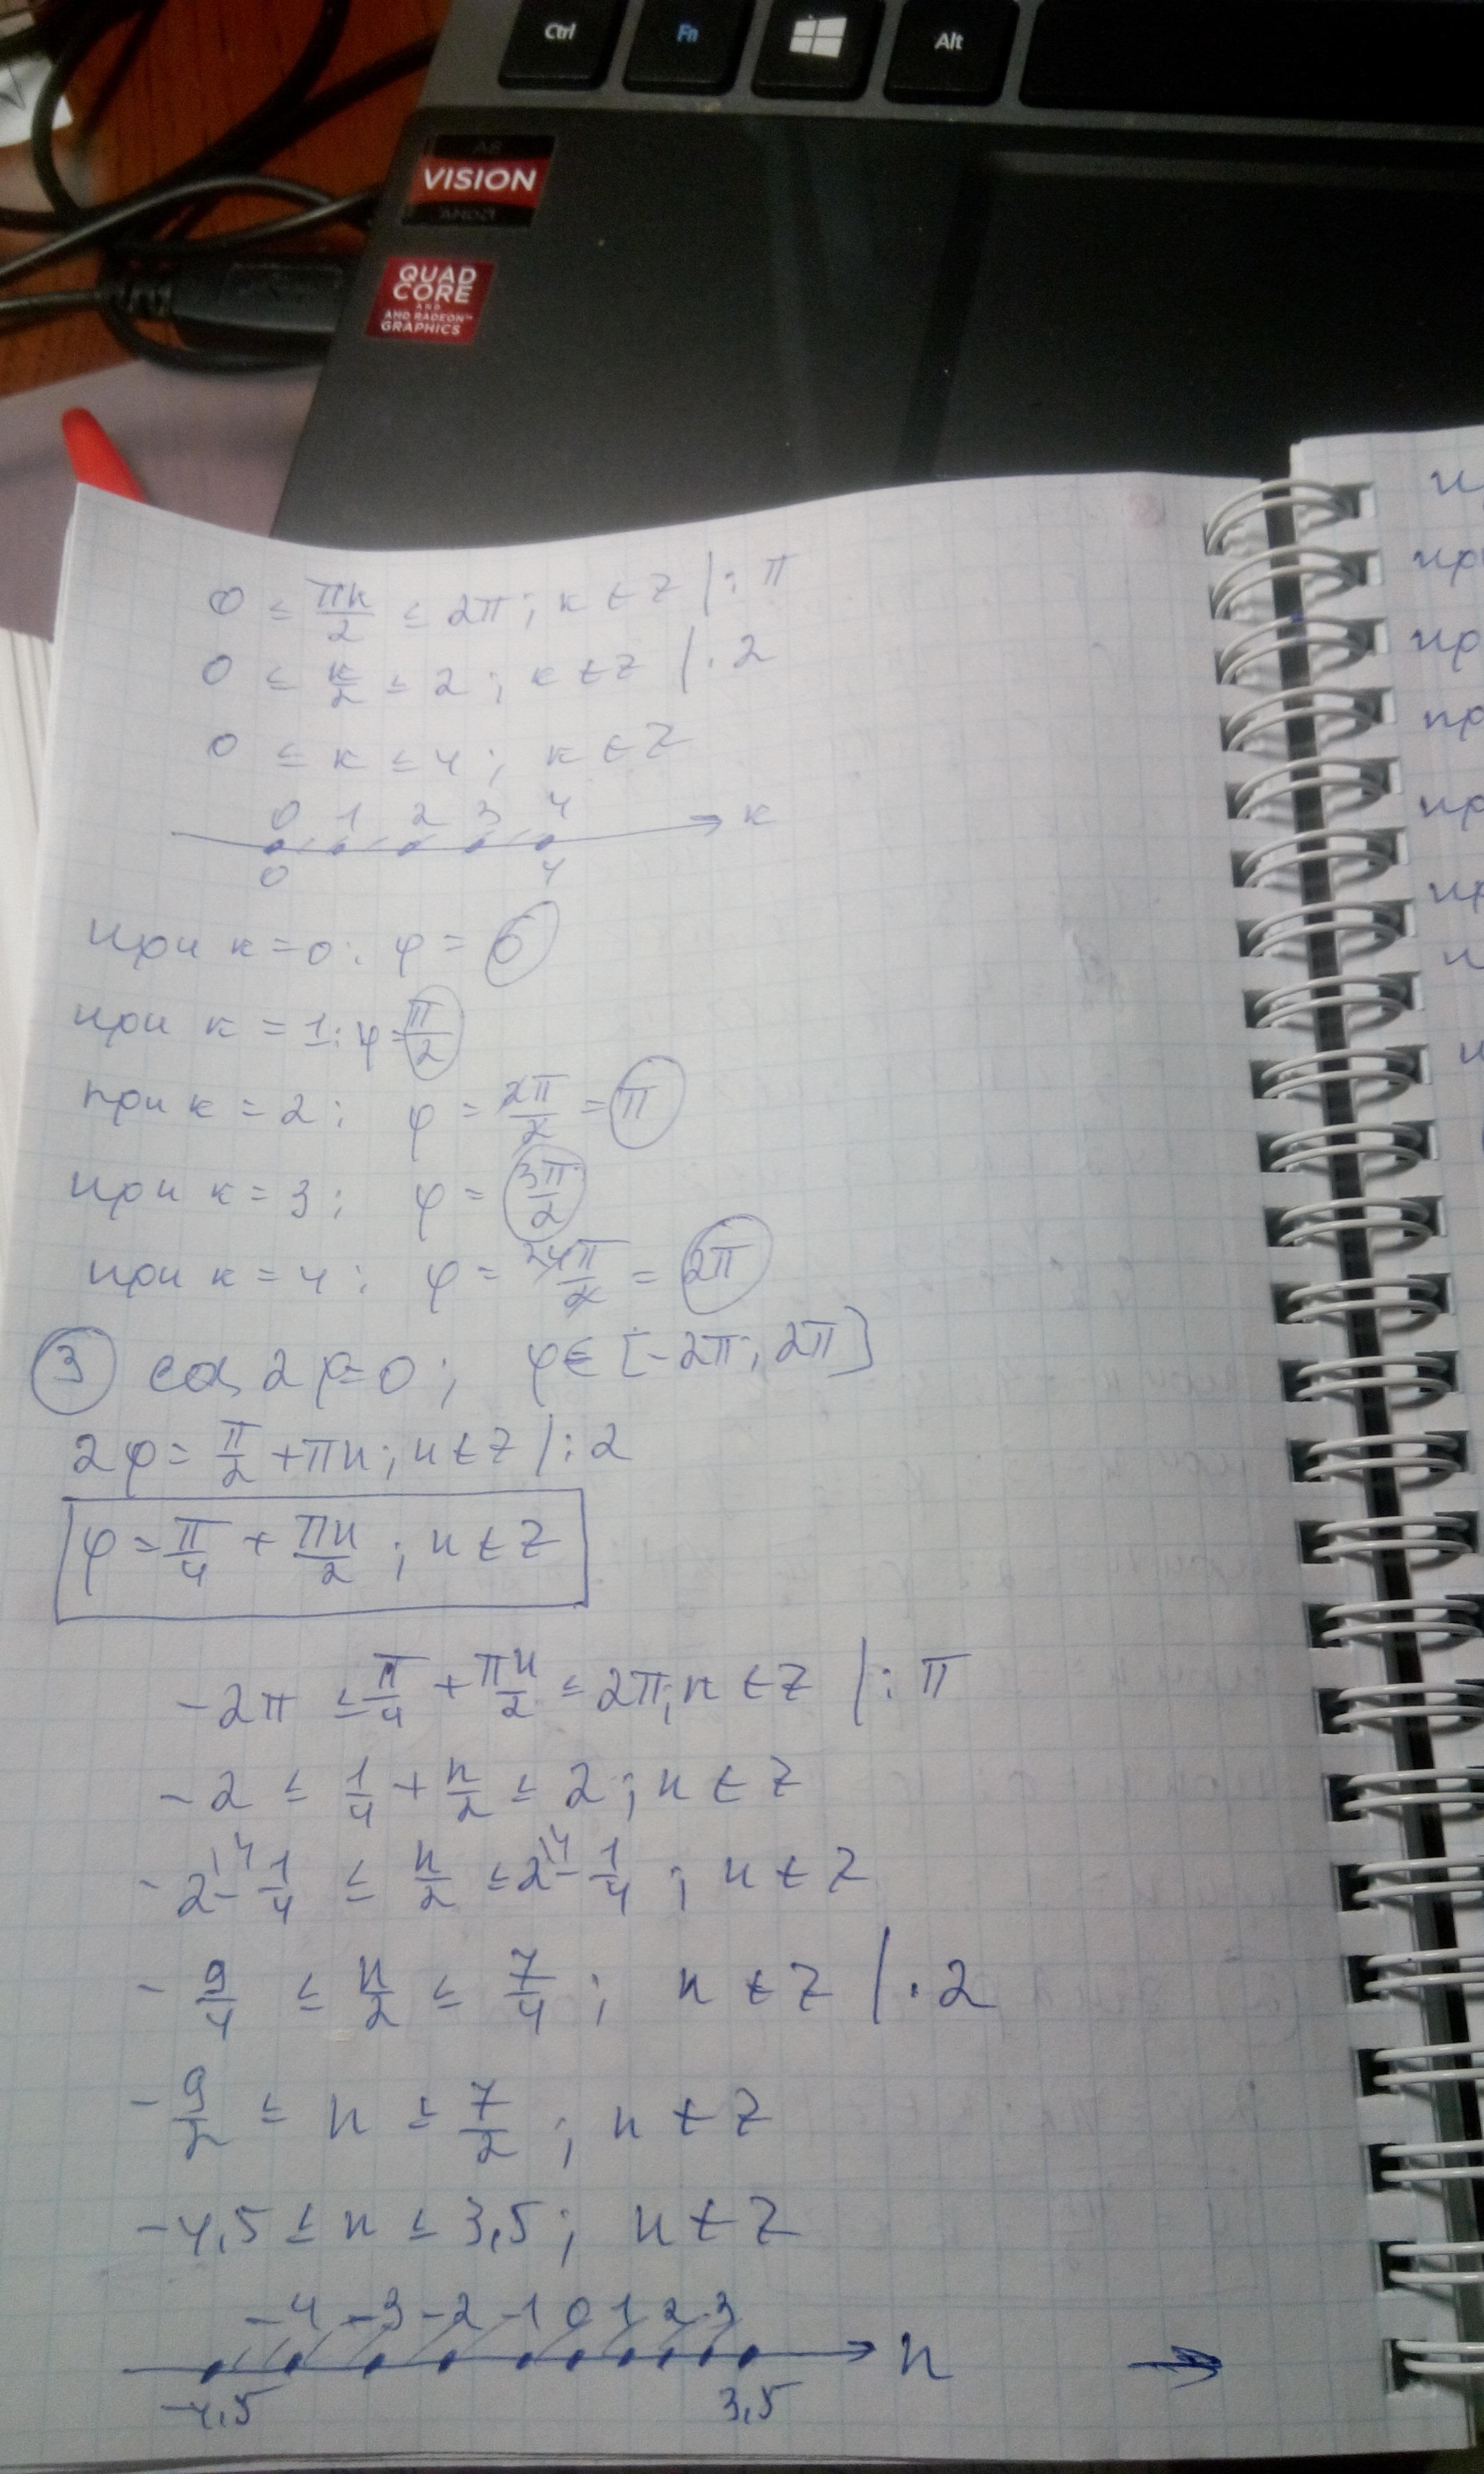 Ctrl Fn Alt
A8
VISION
AMD
QUAD
CORE
AND
AMD RADEON™
GRAPHICS
0 ≤ πк/2 ≤ 2π; к ∈ Z |: π
0 ≤ к/2 ≤ 2; к ∈ Z | · 2
0 ≤ к ≤ 4; к ∈ Z
0 1 2 3 4 к
0 4
при к = 0: φ = 0
при к = 1: φ = π/2
при к = 2: φ = 2π/2 = π
при к = 3; φ = 3π/2
при к = 4: φ = 4π/2 = 2π
3 cos 2φ = 0; φ ∈ [-2π; 2π]
2φ = π/2 + πn; n ∈ Z |: 2
φ = π/4 + πn/2; n ∈ Z
-2π ≤ π/4 + πn/2 ≤ 2π; n ∈ Z |: π
-2 ≤ 1/4 + n/2 ≤ 2; n ∈ Z
-2\4 - 1/4 ≤ n/2 ≤ 2\4 - 1/4; n ∈ Z
-9/4 ≤ n/2 ≤ 7/4; n ∈ Z | · 2
-9/2 ≤ n ≤ 7/2; n ∈ Z
-4,5 ≤ n ≤ 3,5; n ∈ Z
-4 -3 -2 -1 0 1 2 3 n
-4,5 3,5